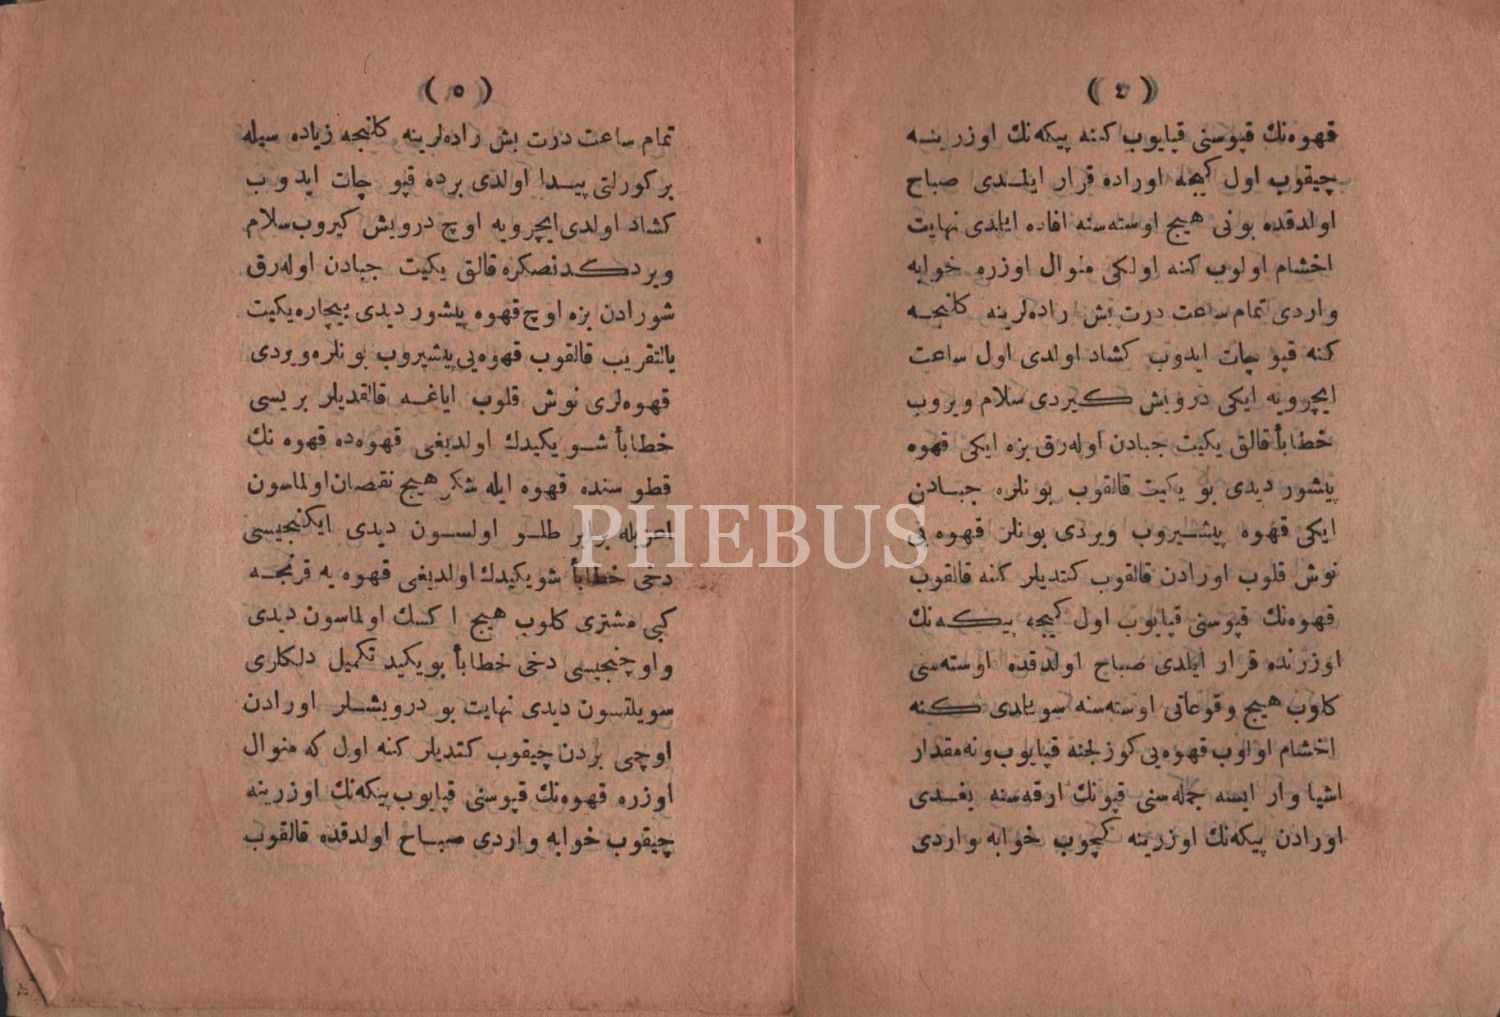 (٤)
قهوه‌نك قپوسنی قپایوب كنه پیكه‌نك اوزرینه
چیقوب اول كیجه اوراده قرار ایلدی صباح
اولدقده بونی هیج اوسته‌سنه افاده ایلدی نهایت
اخشام اولوب كنه اولكی منوال اوزره خوابه
واردی تمام ساعت درت بش راده‌لرینه كلنجه
كنه قپو چات ایدوب كشاد اولدی اول ساعت
ایچرویه ایكی درویش كیردی سلام ویروب
خطاباً قالق یكیت جبادن اوله‌رق بزه ایكی قهوه
پیشور دیدی بو یكیت قالقوب بونلره جبادن
ایكی قهوه پیشیروب ویردی بونلر قهوه یی
نوش قلوب اورادن قالقوب كتدیلر كنه قالقوب
قهوه‌نك قپوسنی قپایوب اول كیجه پیكه‌نك
اوزرنده قرار ایلدی صباح اولدقده اوسته‌سی
كلوب هیج وقوعاتی اوسته‌سنه سویلدی كنه
اخشام اولوب قهوه‌یی كوزلجنه قپایوب ونه‌مقدار
اشیا وار ایسه جمله‌سنی قپونك ارقه‌سنه یغدی
اورادن پیكه‌نك اوزرینه كچوب خوابه واردی
(٥)
تمام ساعت درت بش راده‌لرینه كلنجه زیاده سیله
بر كورلتی پیدا اولدی برده قپو چات ایدوب
كشاد اولدی ایچرویه اوچ درویش كیروب سلام
ویردكدنصكره قالق یكیت جبادن اوله‌رق
شورادن بزه اوچ قهوه پیشور دیدی بیچاره یكیت
بالتقریب قالقوب قهوه‌یی پیشیروب بونلره ویردی
قهوه‌لری نوش قلوب ایاغه قالقدیلر بریسی
خطاباً شو یكیدك اولدیغی قهوه‌ده قهوه نك
قطو سنده قهوه ایله شكر هیج نقصان اولماسون
برابر طلو اولسون دیدی ایكنجیسی
دخی خطاباً شو یكیدك اولدیغی قهوه یه قرنجه
كبی مشتری كلوب هیج اكسك اولماسون دیدی
واوچنجیسی دخی خطاباً بو یكید تكمیل دلكاری
سویلتسون دیدی نهایت بو درویشلر اورادن
اوچی بردن چیقوب كتدیلر كنه اول كه منوال
اوزره قهوه‌نك قپوسنی قپایوب پیكه‌نك اوزرینه
چیقوب خوابه واردی صباح اولدقده قالقوب
PHEBUS